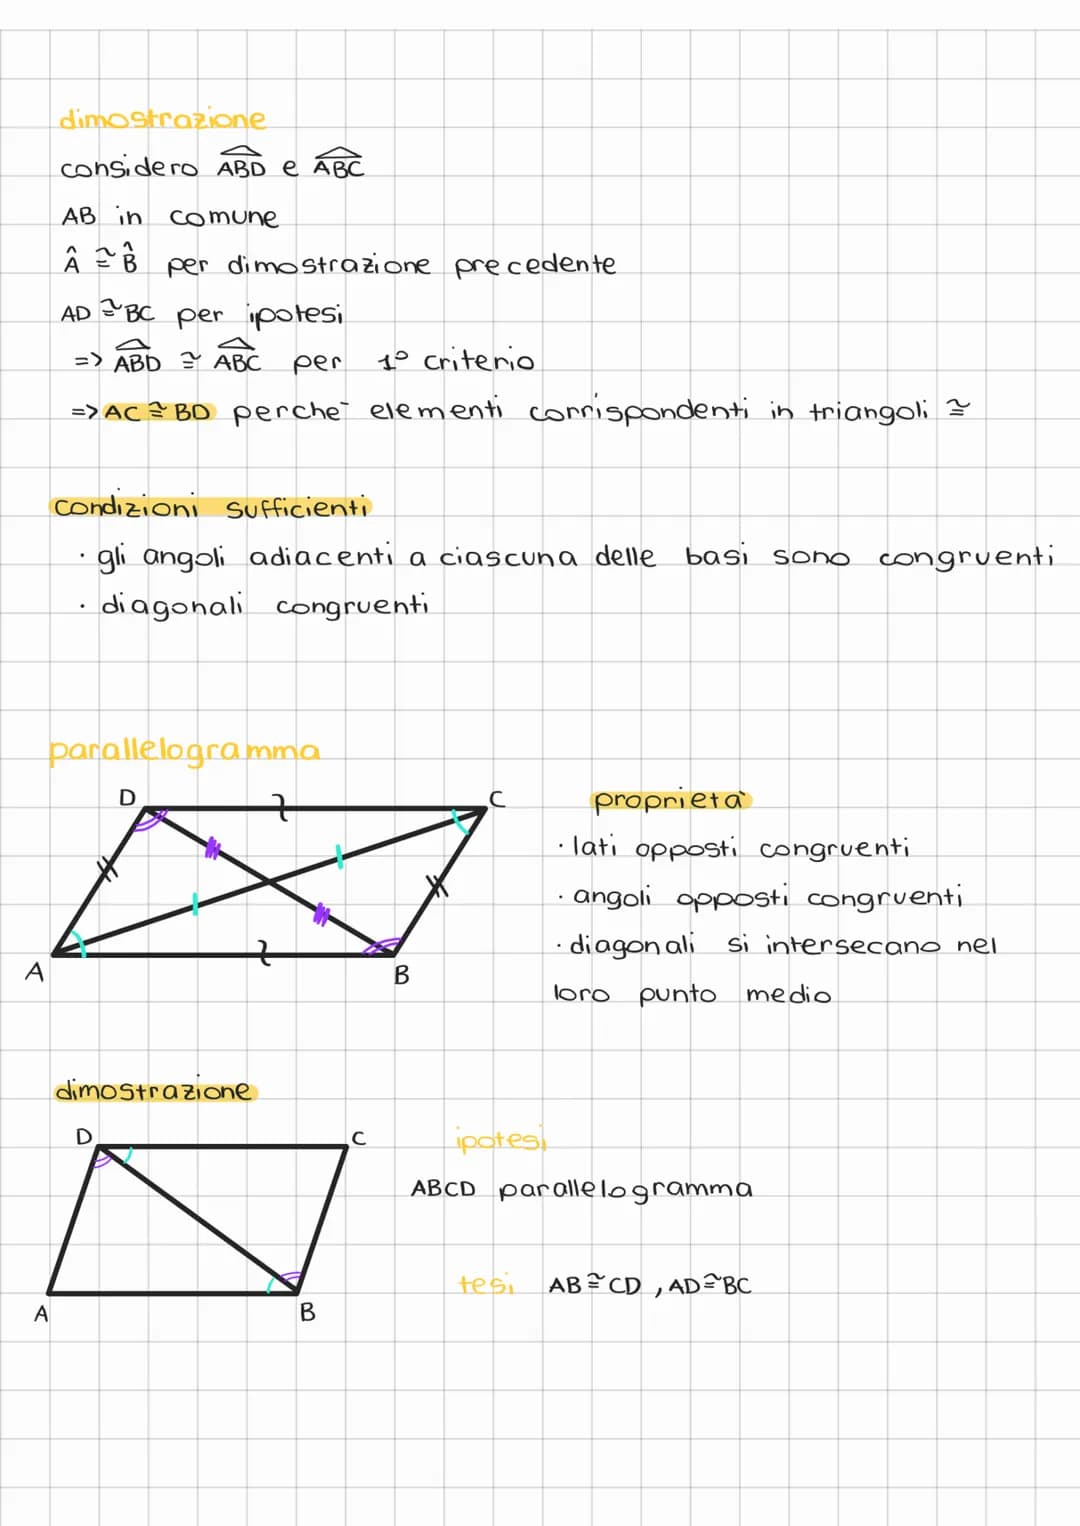 dimostrazione
considero ABD e ABC
AB in comune
Â ≅ B̂ per dimostrazione precedente
AD ≅ BC per ipotesi
=> ABD ≅ ABC per 1° criterio
=> AC ≅ BD perche elementi corrispondenti in triangoli ≅
condizioni sufficienti
· gli angoli adiacenti a ciascuna delle basi sono congruenti
· diagonali congruenti
parallelogramma
D
C
A
B
proprietà
· lati opposti congruenti
· angoli opposti congruenti
· diagonali si intersecano nel
loro punto medio
dimostrazione
D
C
A
B
ipotesi
ABCD parallelogramma
tesi AB ≅ CD , AD ≅ BC